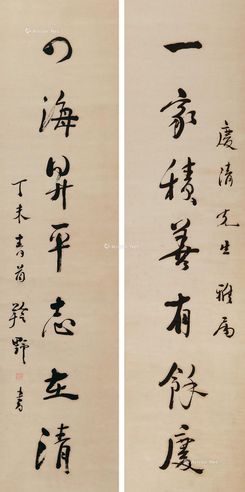 慶清先生雅属
一家積善有餘慶
四海昇平志在清
丁未春首
野書